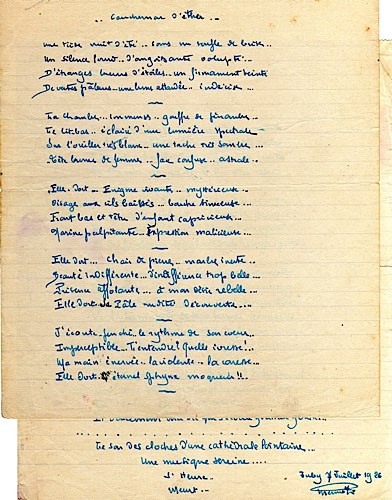 .. Cauchemar d'éther ..
une tiède nuit d'été .. sous un souffle de brise..
Un silence lourd.. d'angoissante volupté..
D'étranges lueurs d'étoiles.. un firmament teinté
De vertes pâleurs - une lueur attardée .. indécise...
Ta chambre.. immense.. gouffre de pénombre..
Le lit bas.. éclairé d'une lumière spectrale..
Sur l'oreiller très blanc.. une tache très sombre...
Tête brune de femme.. face confuse.. astrale..
Elle dort... Enigme vivante.. mystérieuse..
Visage aux cils baissés.. bouche sinueuse..
Front bas et têtu d'enfant capricieuse..
Narine palpitante.. Expression malicieuse..
Elle dort... Chair de pierre.. marbre inerte..
Beauté indifférente.. d'indifférence trop belle..
Présence affolante.. et mon désir rebelle..
Elle dort.. Pâle nudité découverte...
J'écoute.. penché.. le rythme de son coeur..
Imperceptible.. L'entendre! Quelle ivresse!...
Ma main énervée.. la violente.. la caresse...
Elle dort.. éternel sphynx moqueur!!..
Le son des cloches d'une cathédrale lointaine...
Une musique sereine....
L'Heure..
Meurt...
Juby 7 Juillet 1926